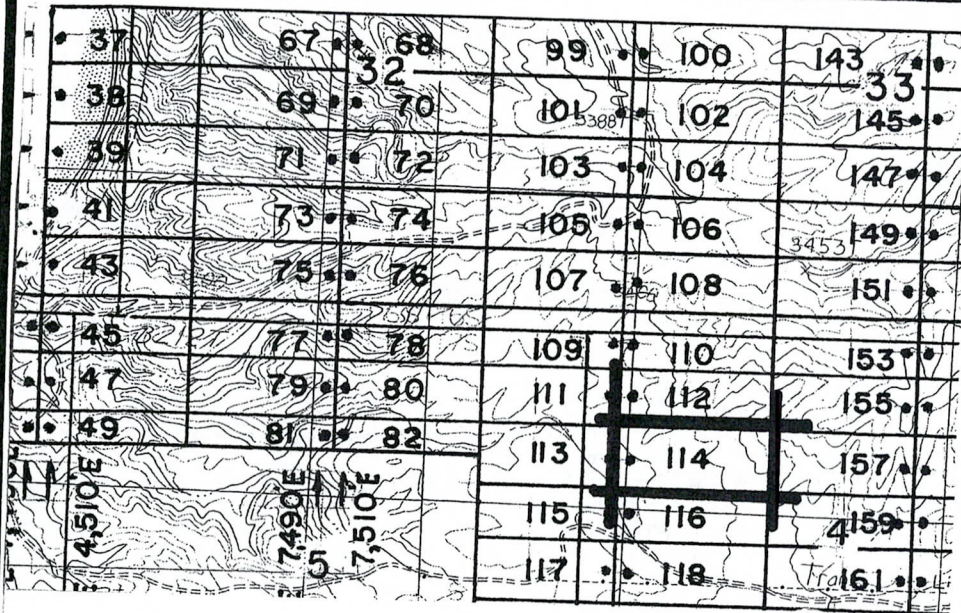 37 67 68 99 100 143
32 33
38 69 70 101 5388 102 145
39 71 72 103 104 147
41 73 74 105 106 3453 149
43 75 76 107 108 151
45 77 78 109 110 153
47 79 80 111 112 155
49 81 82 113 114 157
115 116 4 159
117 118 161
4,510'E 7,490'E 5 7,510'E